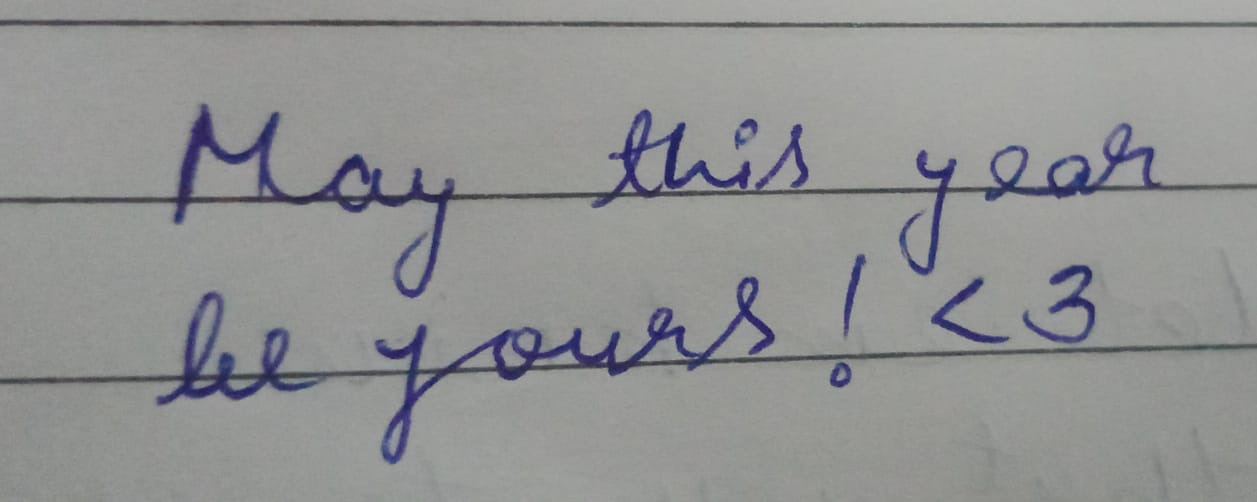 May this year
be yours! <3